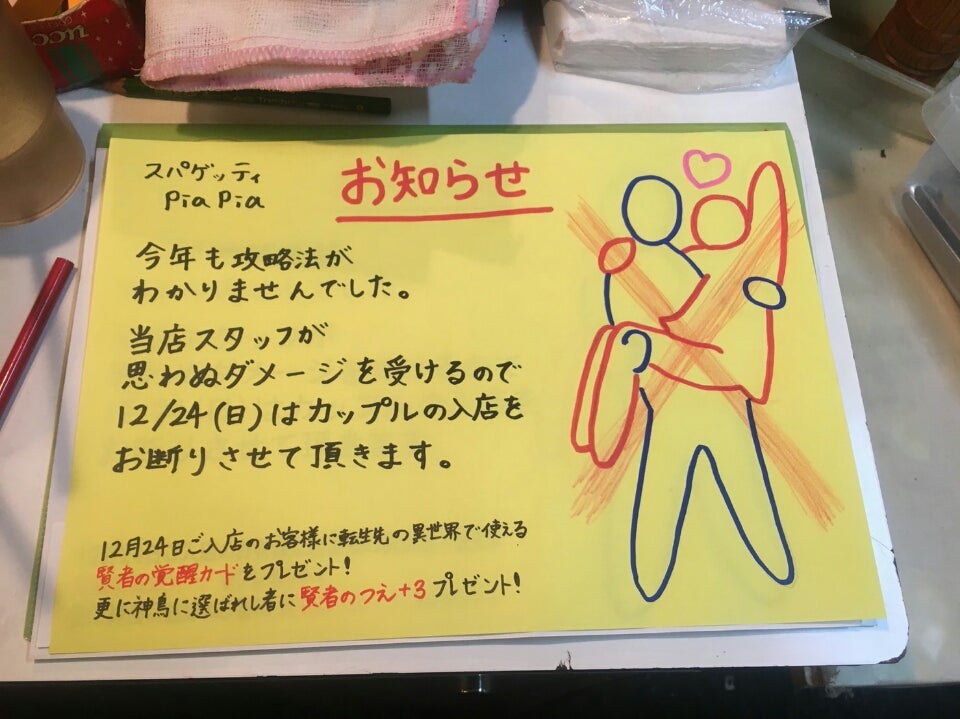 ucc
スパゲッティ
Pia Pia
お知らせ
今年も攻略法が
わかりませんでした。
当店スタッフが
思わぬダメージを受けるので
12/24(日)はカップルの入店を
お断りさせて頂きます。
12月24日ご入店のお客様に転生先の異世界で使える
賢者の覚醒カードをプレゼント!
更に神鳥に選ばれし者に賢者のつえ+3プレゼント!